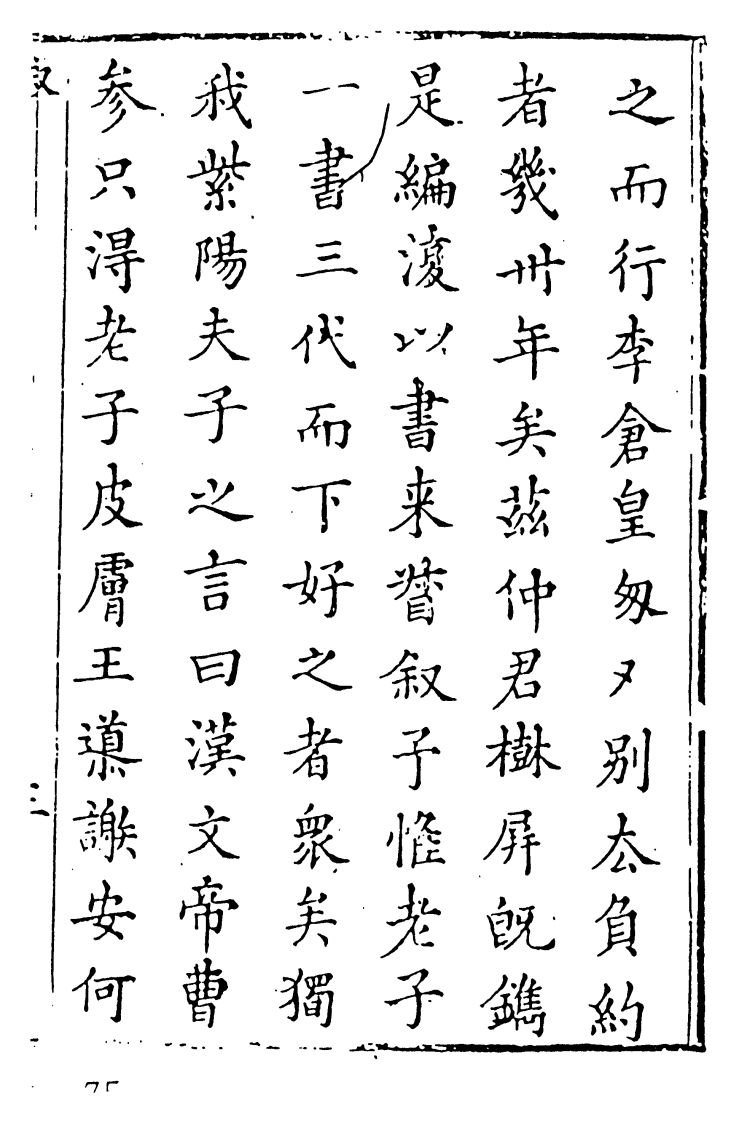 之而行李倉皇匆々别去負約
者幾卅年矣茲仲君樹屏既鐫
是編復以書来督叙予惟老子
一書三代而下好之者衆矣獨
我紫陽夫子之言曰漢文帝曹
参只得老子皮膚王導謝安何
三